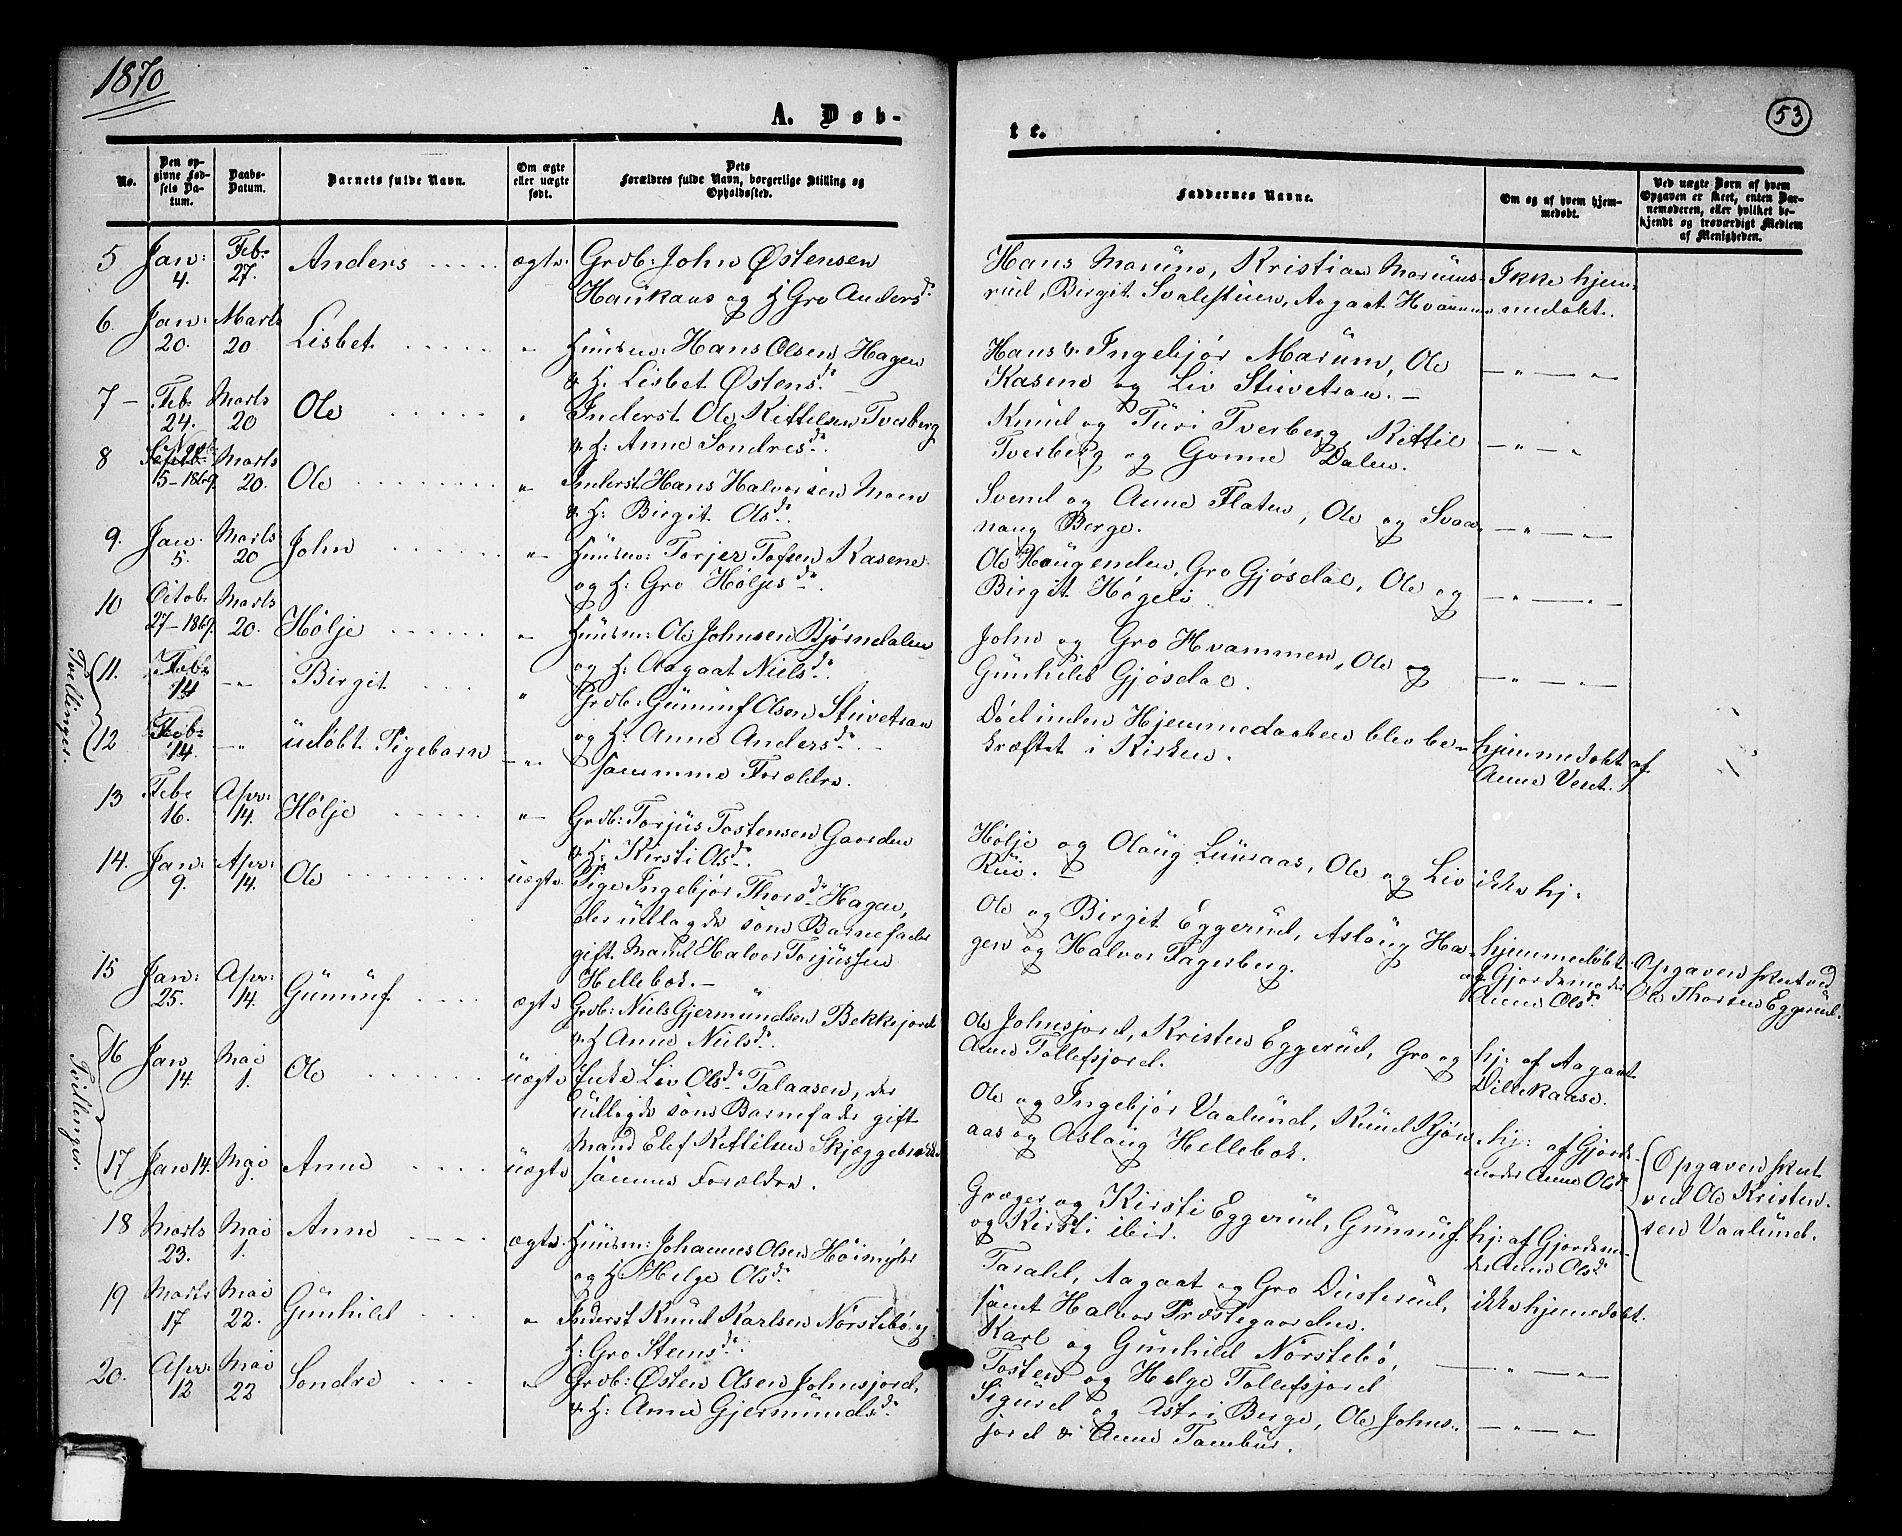 1870
A. Døb-
No.
Den op-
givne Fød-
sels Da-
tum.
Daabs-
Datum.
Barnets fulde Navn.
Om ægte
eller uægte
født.
Dets
Forældres fulde Navn, borgerlige Stilling og
Opholdssted.
5 Jan: 4. Feb: 27. Anders ægte
Grdb: John Østensen
Haukaas og H Gro Andersd.
6. Jan: 20. Marts 20 Lisbet "
Huusm: Hans Olsen Hagen
& H. Lisbet Østensd.
7 – Feb 24. Marts 20 Ole "
Inderst Ole Kittilsen Tverberg
& H: Anne Sondresd.
8 Septb: Novb 15-1869. Marts 20. Ole "
Inderst Hans Halvorsen Moen
& H: Birgit Olsd.
9. Jan. 5. Marts 20 John "
Huusm: Torjer Tofsen Kasene
og H: Gro Høljesd.
10 Octob 27-1869. Marts 20. Hølje "
Huusm: Ole Johnsen Bjørndalen
og H: Aagaat Nielsd.
Tvillinger.
11. Feb: 14 " Birgit "
Grdb: Gunnuf Olsen Stivetraa
og H: Anne Andersd.
12 Feb: 14. " udøbt Pigebarn "
samme Forældre.
13 Feb: 16. Apr: 14. Hølje "
Grdb: Torjus Tostensen Gaarden
& H: Kirsti Olsd.
14. Jan: 9. Apr: 14. Ole uægte
Pige Ingebjør Thorsd Hagen,
der udlagde som Barnefader
gift Mand Halvor Torjussen
Hellebek. –
15 Jan: 25. Apr: 14. Gunnuf ægte
Grdb: Niels Gjermundsen Bekkejord
& H Anne Nielsd.
Tvillinger.
16 Jan 14. Mai 1. Ole uægte
Enke Liv Olsd Talaasen, der
udlagde som Barnefader gift
Mand Elef Kittilsen Skjæggebrekke
17 Jan 14. Mai Anne uægte
samme Forældre.
18 Marts 23. Mai 1. Anne ægte
Huusm: Johannes Olsen Høimyhr
og H Helge Olsd.
19 Marts 17 Mai 22. Gunhild "
Inderst Knud Karlsen Nørstebø og
H: Gro Steensd.
20. Apr: 12 Mai 22 Sondre "
Grdb: Østen Olsen Johnsjord,
& H: Anne Gjermundsd.
te.
53
Faddernes Navne.
Om og af hvem hjem-
medøbt.
Ved uægte Børn af hvem
Opgaven er skeet, enten Bar-
nemoderen, eller hvilket be-
kjendt og troværdigt Medlem
af Menigheden.
Hans Marum, Kristian Marums-
rud, Birgit Svalestuen, Aagaat Hvammen
Ikke hjem-
medøbt.
Hans & Ingebjør Marum, Ole
Kasene og Liv Stivetraa. –
Knud og Turi Tverberg, Kittil
Tverberg og Gonne Dalen.
Svend og Anne Flaten, Ole og Svaa-
naug Berge.
Ole Haugenden, Gro Gjøsdal, Ole og
Birgit Høgeli
John og Gro Hvammen, Ole og
Gunhild Gjøsdal.
Død inden Hjemmedaaben blev be-
kræftet i Kirken.
hjemmedøbt af
Anne Veset.
Hølje og Olaug Luuraas, Ole og Liv
Rui.
ikke hj.
Ole og Birgit Eggerud, Aslaug Ha-
gen og Halvor Fagerberg.
hjemmedøbt
af Gjordemoder
Anne Olsd.
Opgaven skeet ved
Ole Thorsen Eggerud.
Ole Johnsjord, Kristen Eggerud, Gro og
Anne Tollefsjord.
hj: af Aagaat
Dillekaase.
Ole og Ingebjør Vaalund, Knud Kjøn-
aas og Aslaug Hellebek.
hj: af Gjorde-
moder Anne Olsd.
Opgaven skeet
ved Ole Kristen-
sen Vaalund.
Græger og Kirsti Eggerud, Gunnuf
og Kirsti ibid.
hj: af Gjordemo-
der Anne Olsd.
Tarald, Aagaat og Gro Dusterud,
samt Halvor Præstegaarden.
ikke hjemedøbt.
Karl og Gunhild Nørstebø,
Tosten og Helge Tollefsjord
Sigurd og Astri Berge, Ole Johns-
jord & Anne Tambur.